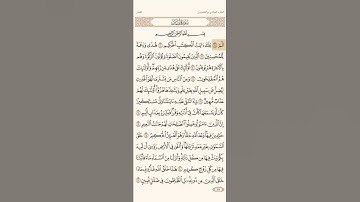 الجزء الحادي والعشرون لقمان
سُورَةُ لُقۡمَانَ
بِسۡمِ ٱللَّهِ ٱلرَّحۡمَٰنِ ٱلرَّحِيمِ
الٓمٓ ١ تِلۡكَ ءَايَٰتُ ٱلۡكِتَٰبِ ٱلۡحَكِيمِ ٢ هُدٗى وَرَحۡمَةٗ
لِّلۡمُحۡسِنِينَ ٣ ٱلَّذِينَ يُقِيمُونَ ٱلصَّلَوٰةَ وَيُؤۡتُونَ ٱلزَّكَوٰةَ وَهُم
بِٱلۡأٓخِرَةِ هُمۡ يُوقِنُونَ ٤ أُوْلَٰٓئِكَ عَلَىٰ هُدٗى مِّن رَّبِّهِمۡۖ وَأُوْلَٰٓئِكَ
هُمُ ٱلۡمُفۡلِحُونَ ٥ وَمِنَ ٱلنَّاسِ مَن يَشۡتَرِي لَهۡوَ ٱلۡحَدِيثِ
لِيُضِلَّ عَن سَبِيلِ ٱللَّهِ بِغَيۡرِ عِلۡمٖ وَيَتَّخِذَهَا هُزُوًاۚ أُوْلَٰٓئِكَ لَهُمۡ
عَذَابٞ مُّهِينٞ ٦ وَإِذَا تُتۡلَىٰ عَلَيۡهِ ءَايَٰتُنَا وَلَّىٰ مُسۡتَكۡبِرٗا
كَأَن لَّمۡ يَسۡمَعۡهَا كَأَنَّ فِيٓ أُذُنَيۡهِ وَقۡرٗاۖ فَبَشِّرۡهُ بِعَذَابٍ أَلِيمٍ ٧
إِنَّ ٱلَّذِينَ ءَامَنُواْ وَعَمِلُواْ ٱلصَّٰلِحَٰتِ لَهُمۡ جَنَّٰتُ ٱلنَّعِيمِ ٨
خَٰلِدِينَ فِيهَاۖ وَعۡدَ ٱللَّهِ حَقّٗاۚ وَهُوَ ٱلۡعَزِيزُ ٱلۡحَكِيمُ ٩ خَلَقَ
ٱلسَّمَٰوَٰتِ بِغَيۡرِ عَمَدٖ تَرَوۡنَهَاۖ وَأَلۡقَىٰ فِي ٱلۡأَرۡضِ رَوَٰسِيَ أَن تَمِيدَ
بِكُمۡ وَبَثَّ فِيهَا مِن كُلِّ دَآبَّةٖۚ وَأَنزَلۡنَا مِنَ ٱلسَّمَآءِ مَآءٗ فَأَنۢبَتۡنَا
فِيهَا مِن كُلِّ زَوۡجٖ كَرِيمٍ ١٠ هَٰذَا خَلۡقُ ٱللَّهِ فَأَرُونِي مَاذَا
خَلَقَ ٱلَّذِينَ مِن دُونِهِۦۚ بَلِ ٱلظَّٰلِمُونَ فِي ضَلَٰلٖ مُّبِينٖ ١١